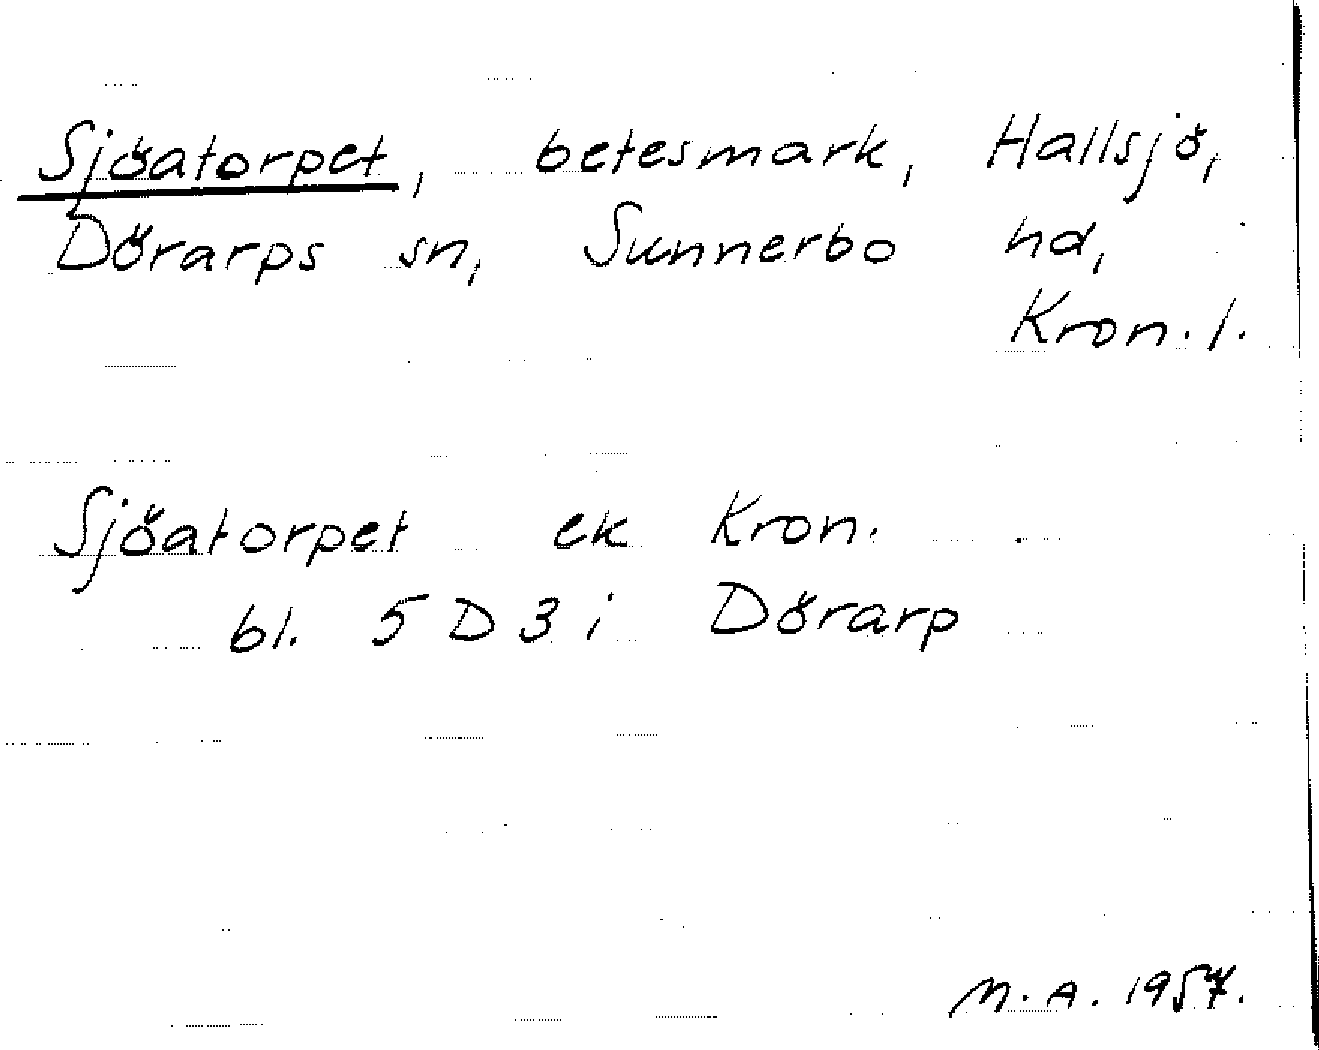 Sjöatorpet, betesmark, Hallsjö,
Dörarps sn, Sunnerbo hd,
Kron. l.
Sjöatorpet ek Kron.
bl. 5 D 3 i Dörarp
M. A. 1957.